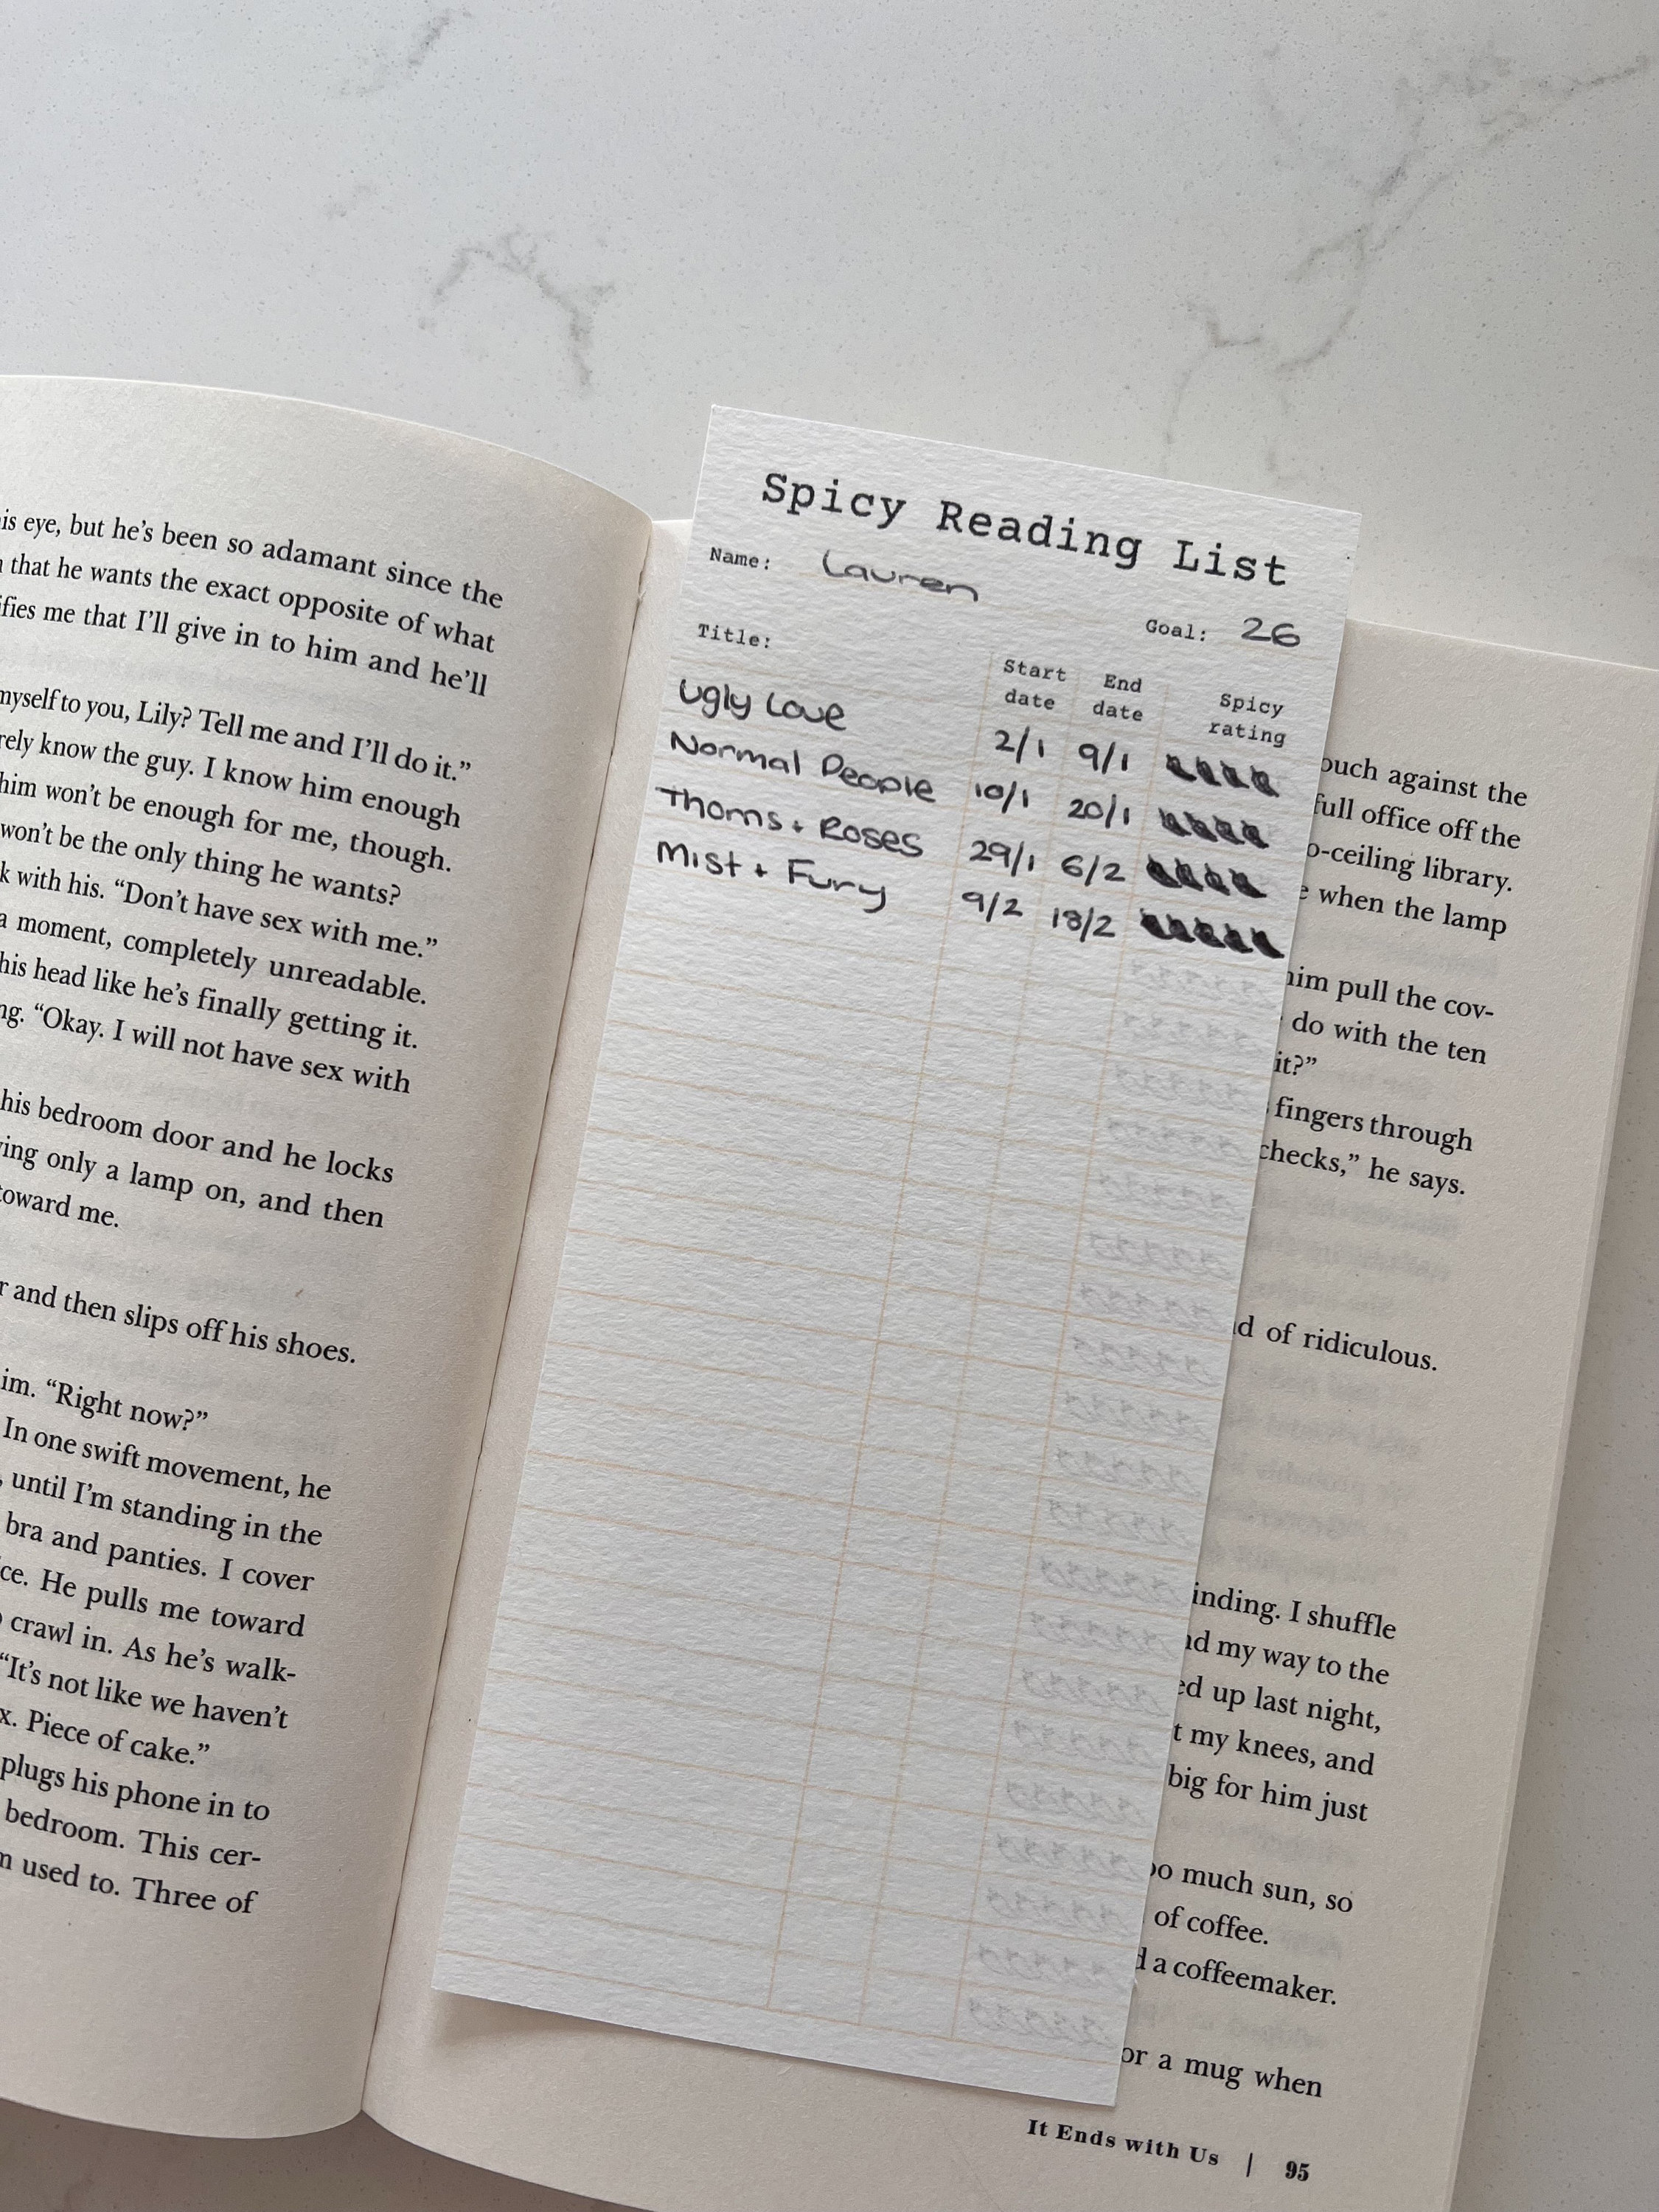 his eye, but he's been so adamant since the
that he wants the exact opposite of what
me that I'll give in to him and he'll
myself to you, Lily? Tell me and I'll do it."
know the guy. I know him enough
him won't be enough for me, though.
won't be the only thing he wants?
with his. "Don't have sex with me."
a moment, completely unreadable.
his head like he's finally getting it.
"Okay. I will not have sex with
his bedroom door and he locks
only a lamp on, and then
toward me.
and then slips off his shoes.
"Right now?"
In one swift movement, he
until I'm standing in the
bra and panties. I cover
He pulls me toward
crawl in. As he's walk-
"It's not like we haven't
Piece of cake."
plugs his phone in to
bedroom. This cer-
used to. Three of
Spicy Reading List
Name: Lauren
Goal: 26
Title: Start date End date Spicy rating
Ugly Love 2/1 9/1
Normal People 10/1 20/1
Thorns + Roses 29/1 6/2
Mist + Fury 9/2 13/2
against the
full office off the
library.
when the lamp
him pull the cov-
do with the ten
it?"
fingers through
checks," he says.
of ridiculous.
I shuffle
my way to the
up last night,
my knees, and
big for him just
much sun, so
of coffee.
a coffeemaker.
a mug when
It Ends with Us | 95